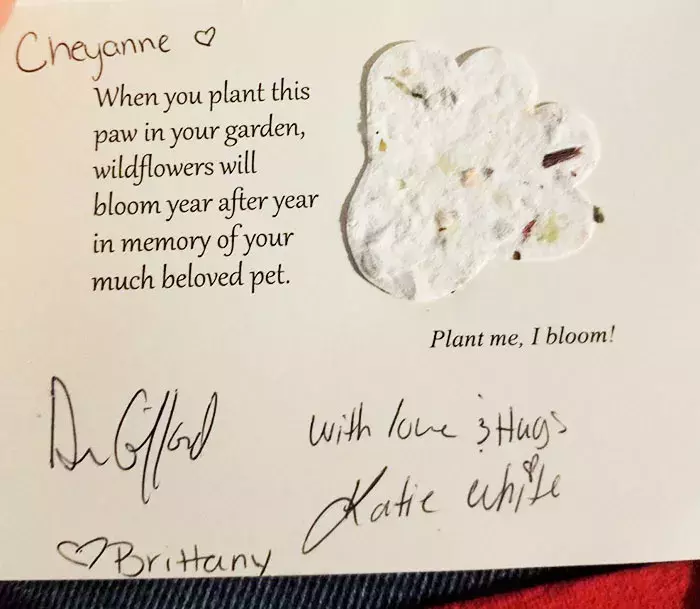 Cheyanne ♡
When you plant this
paw in your garden,
wildflowers will
bloom year after year
in memory of your
much beloved pet.
Plant me, I bloom!
Dr Gifford
with love & Hugs
Katie White
♡Brittany